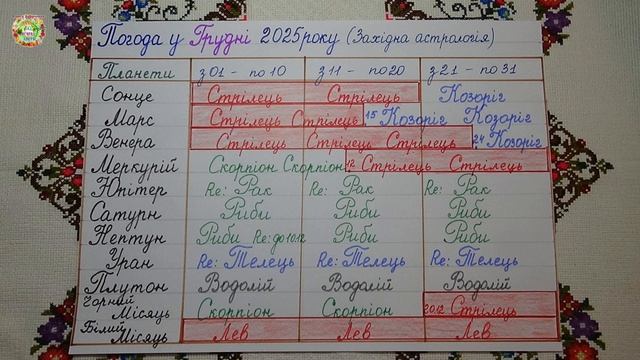 Погода у Грудні 2025року (Західна астрологія)
Планети з 01 - по 10 з 11 - по 20 з 21 - по 31
Сонце Стрілець Стрілець Козоріг
Марс Стрілець Стрілець 15 Козоріг Козоріг
Венера Стрілець Стрілець Стрілець 24 Козоріг
Меркурій Скорпіон Скорпіон 12 Стрілець Стрілець
Юпітер Re: Рак Re: Рак Re: Рак
Сатурн Риби Риби Риби
Нептун Риби Re: до 10.12 Риби Риби
Уран Re: Телець Re: Телець Re: Телець
Плутон Водолій Водолій Водолій
Чорний Місяць Скорпіон Скорпіон 20.12 Стрілець
Білий Місяць Лев Лев Лев